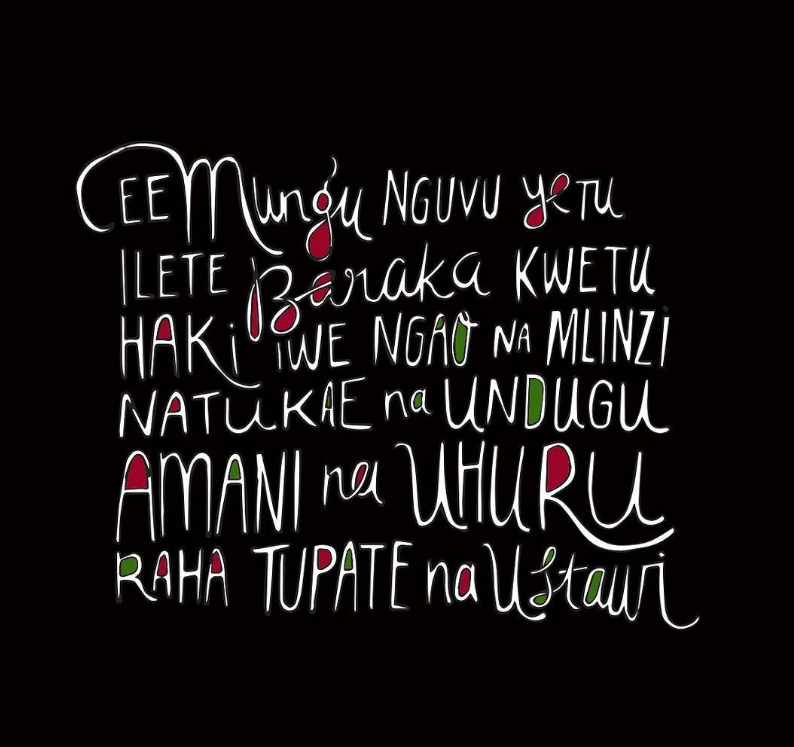 EE Mungu NGUVU yeTU
ILETE Baraka KWETU
HAKi iWE NGAO NA MLINZi
NATUKAE na UNDUGU
AMANI na UHURU
RAHA TUPATE na Ustawi